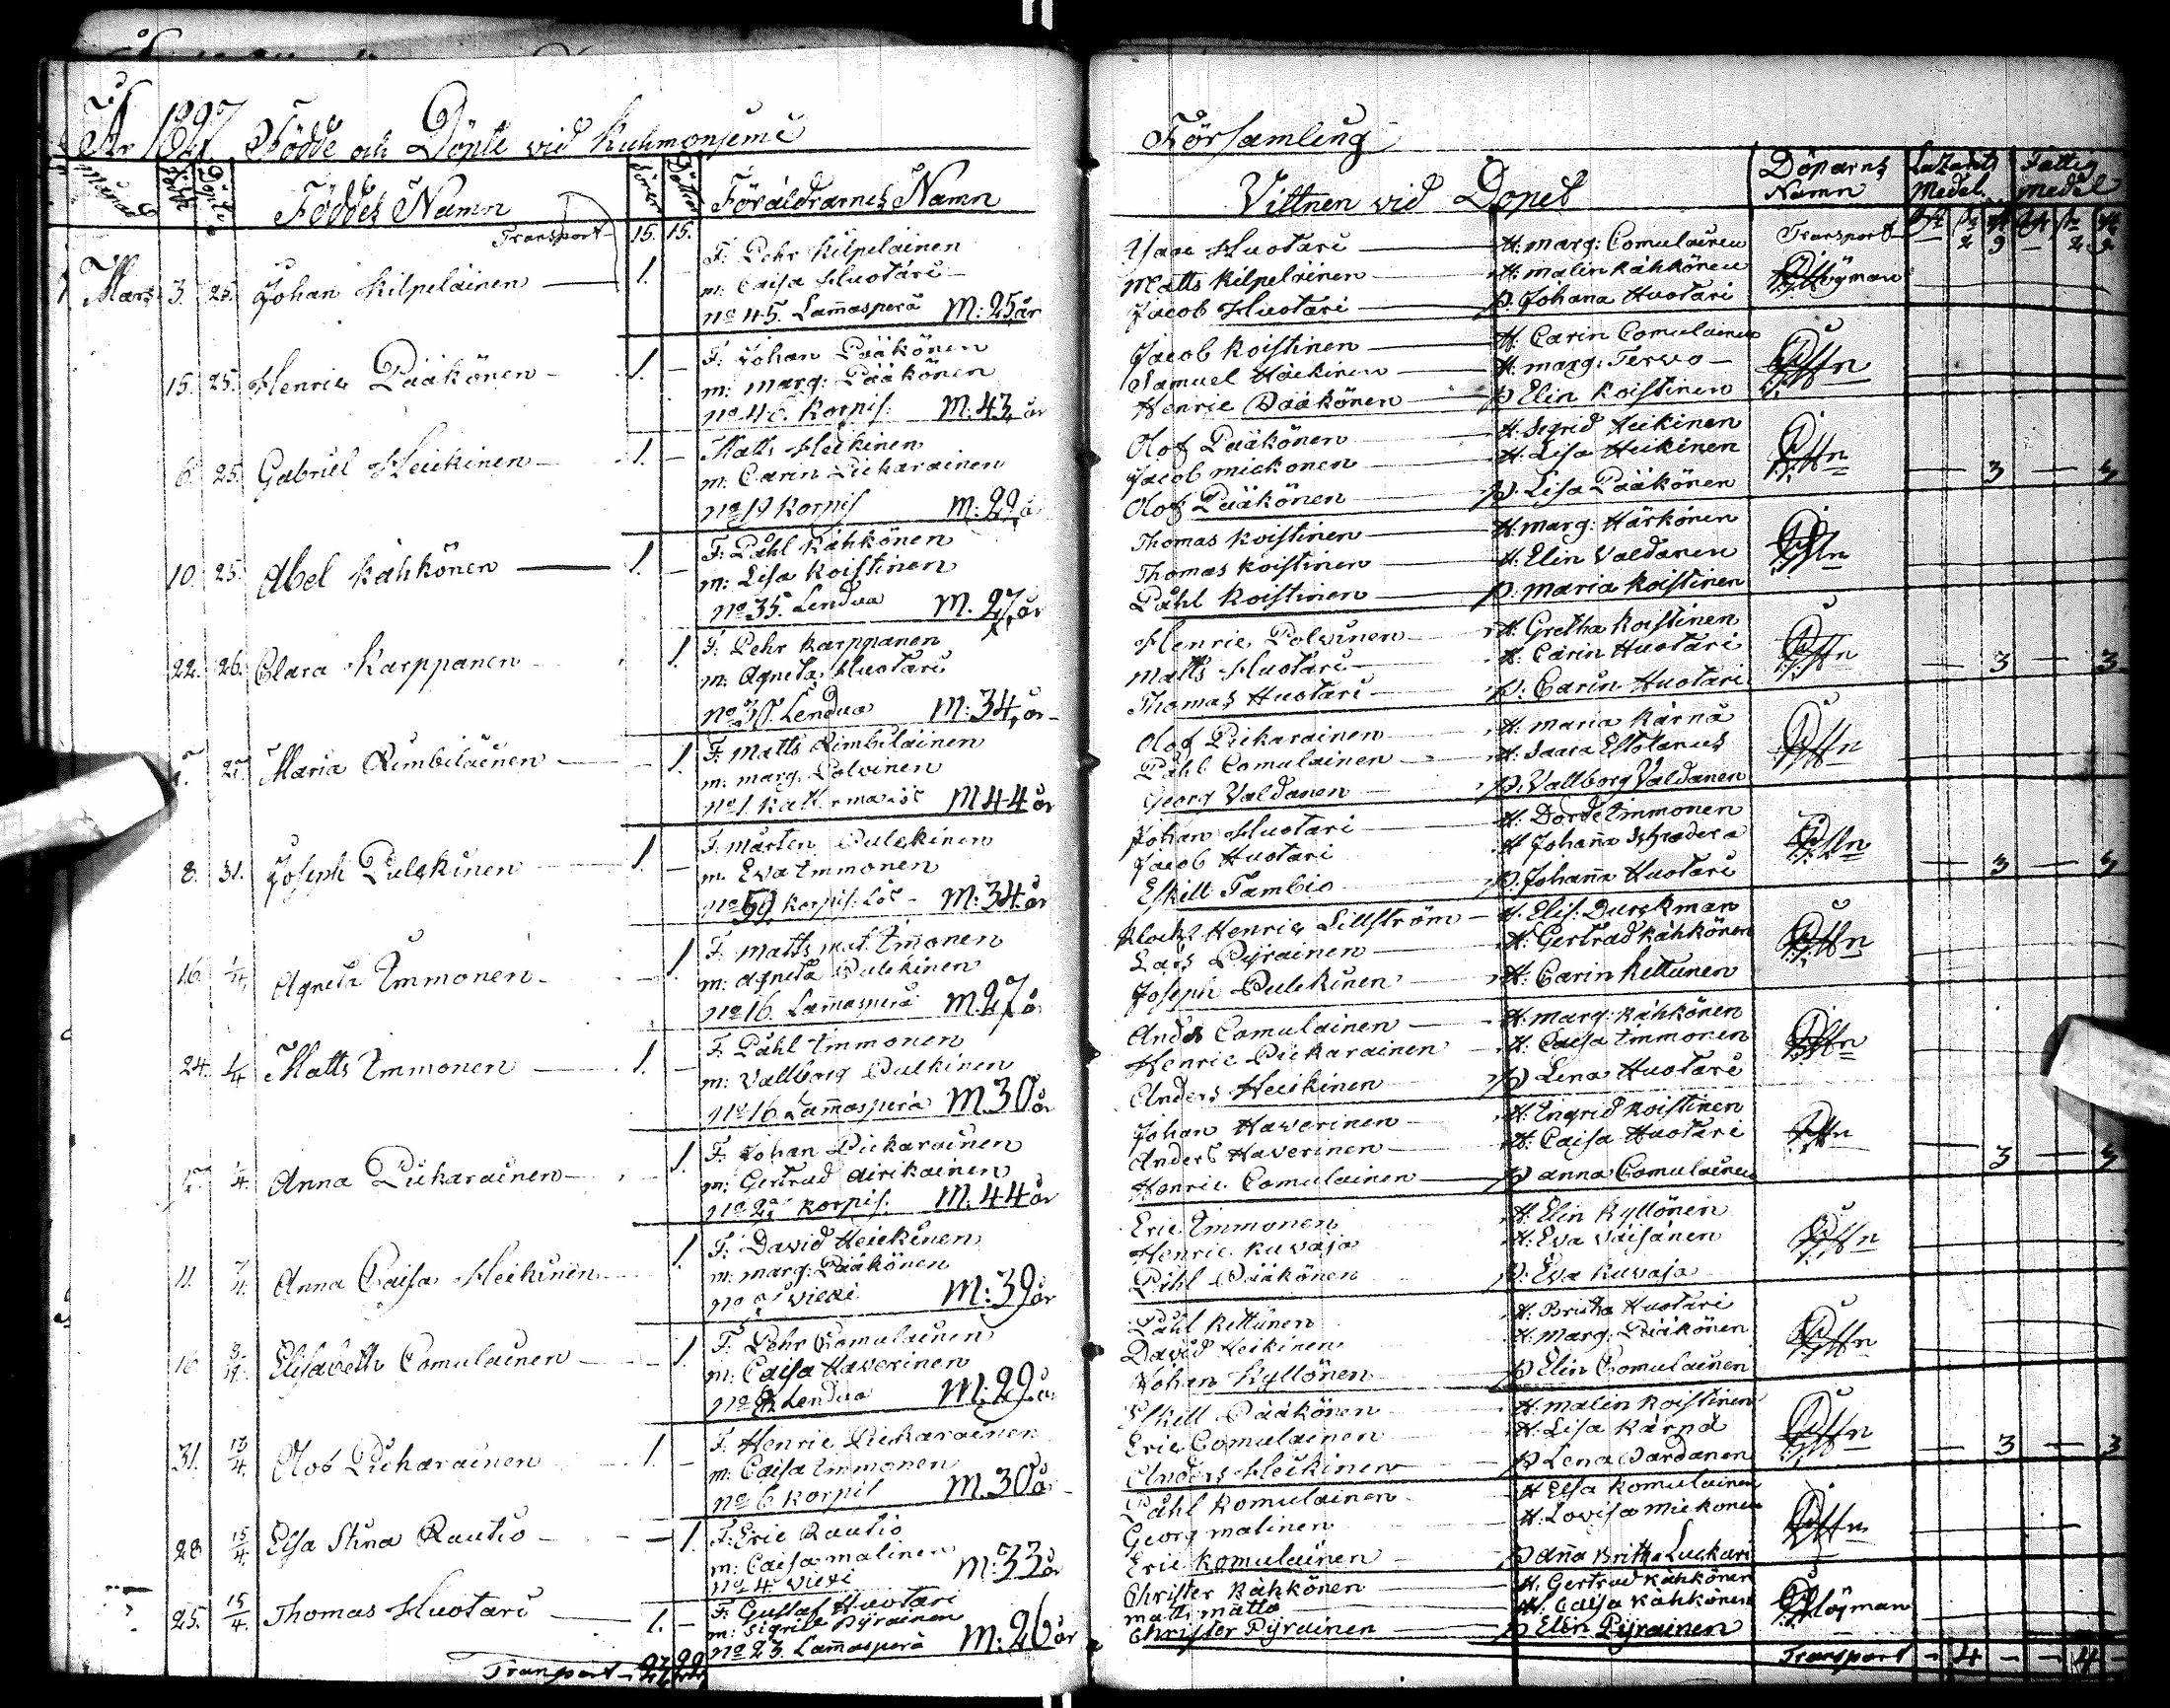 År 1827 Födde och Döpte vid Kuhmonjemi
Församling
Månad Födde Döpte Föddes Namn Söner Döttrar Föräldrarnes Namn
Vittnen vid Dopet Döparns Namn Lazarets Medel Fattig medel
Transport 15. 15.
Transport
Mars 3. 25. Johan Kilpeläinen 1. –
F: Pehr Kilpeläinen
m: Caisa Huotari
no 45. Lam̄asperä M: 25, år
Isac Huotari H: marg: Comulainen
Matts Kilpeläinen H: malin Kähkönen
Jacob Huotari p. Johana Huotari
15. 25. Henric Pääkönen 1. –
F: Johan Pääkönen
m: marg: Pääkönen
no 46. Korpis: M: 43, år
Jacob Koistinen H: Carin Comulainen
Samuel Häikinen H: marg: Terwo
Henric Pääkönen p Elin Koistinen
6. 25. Gabriel Heickinen 1. –
Matts Heikinen
m: Carin Pickarainen
no 19 Korpis M: 29, år
Olof Pääkönen H: Sigrid Heikinen
Jacob mickonen H: Lisa Heikinen
Olof Pääkönen p. Lisa Pääkönen
– 3 –
10. 25. Abel Kähkönen 1. –
F: Påhl Kähkönen
m: Lisa Koistinen
no 35. Lendua M. 27, år
Thomas Koistinen H: marg: Härkönen
Thomas Koistinen H: Elin Valdanen
Påhl Koistinen p. maria Koistinen
22. 26. Clara Karppanen 1.
F: Pehr Karppanen
m: Agneta Huotari
Lendua M: 34, år
Henric Polvinen H: Gretha Koistinen
Matts Huotari H: Carin Huotari
Thomas Huotari p. Carin Huotari
– 3 – 3
27. Maria Rimbiläinen – 1.
F: Matts Rimbiläinen
m: marg: Polvinen
no 1. M 44 år
Olof Pickarainen H: maria Kärnä
Påhl Comulainen H: Saara
Georg Valdanen p. Vallborg Valdanen
8. 31. Joseph Pulckinen 1. –
F: Mårten Pulckinen
m: Eva Immonen
no 59 Korpis: M: 34. år
Johan Huotari H: Dorde Immonen
Jacob Huotari H Johan̄a Schroderα
Eskill Tambio p. Johan̄a Huotari
– 3 –
16. 1/4 Agneta Immonen – 1
F: Matts mat. Im̄onen
m: Agneta Pulckinen
no 16. Lam̄asperä M. 27 år
Klock: Henric Lillström H: Elis: Durckman
Lars Pyrainen H: Gertrud Kähkönen
Joseph Pulckinen H: Carin Kettunen
24. 1/4 Matts Immonen 1. –
F: Påhl Immonen
m: Vallborg Pulkinen
no 16 Lam̄asperä M. 30 år
Anders Comulainen H: marg: Kähkönen
Henric Pickarainen H: Caisa Immonen
Anders Heickinen p Lena Huotari
1/4. Anna Pickarainen 1.
F: Johan Pickarainen
m: Gertrud Airikainen
Korpis: M. 44 år
Johan Haverinen H: Ingrid Koistinen
Anders Haverinen H: Caisa Huotari
Henric Comulainen p anna Comulainen
– 3 –
11. 7/4. Anna Caisa Heikinen 1.
F: David Heickinen
m: marg: Pääkönen
Viexi M: 39 år
Eric Immonen H: Elin Kyllönen
Henric Kuvaja H: Eva Väisänen
Påhl Pääkönen p. Eva Kuvaja
16 8/4. Elisabeth Comulainen – 1.
F: Pehr Comulainen
m: Caisa Haverinen
Lendua M: 29. år
Påhl Kettunen H: Britha Huotari
David Heikinen H: Marg: Pääkönen
Johan Kyllönen p Elin Comulainen
31. 13/4. Olof Pickarainen 1. –
F: Henric Pickarainen
m: Caisa Immonen
no 6 Korpis M. 30 år
Eskill Pääkönen H: malin Koistinen
Eric Comulainen H: Lisa Kärnä
Anders Heickinen p Lena Vardanen
– 3 – 3
28 15/4 Elsa Stina Rautio – 1.
F: Eric Rautio
m: Caisa malinen
no 4. Viexi M: 33 år
Påhl Komulainen H Elsa Komulainen
Georg malinen H: Lovisa Mickonen
Eric Komulainen p an̄a Britha Luckari
25. 15/4. Thomas Huotari 1. –
F: Gustaf Huotari
m: Sigrid Pyrainen
no 23. Lam̄asperä M: 26 år
Christer Kähkönen H: Gertrud Kähkönen
matts mätta H: Caisa Kähkönen
Christer Pyrainen p Elin Pyrainen
Transport
Transport – 4 – – 4 –